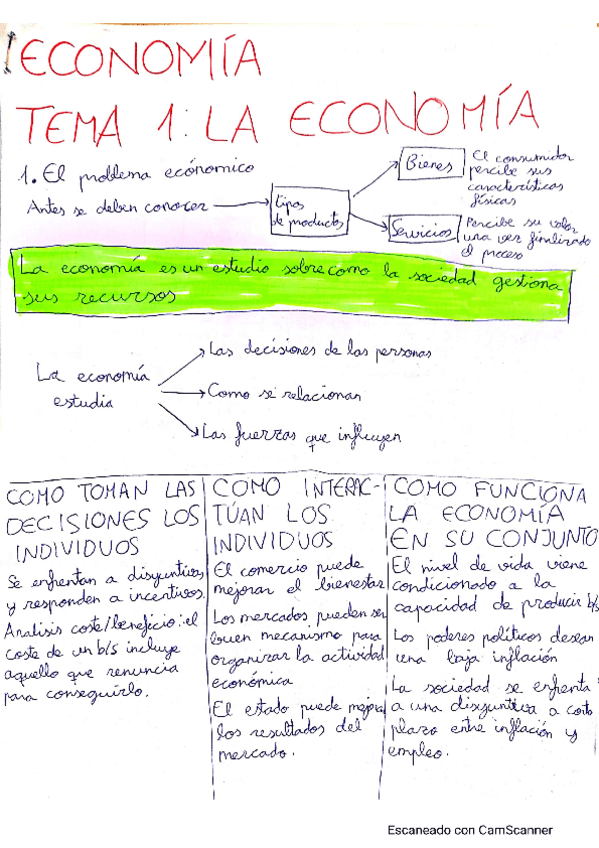 ECONOMÍA
TEMA 1: LA ECONOMÍA
1. El problema ecónomico
Antes se deben conocer
tipos
de productos
Bienes
El consumidor
percibe sus
características
físicas
Servicios
Percibe su valor
una vez finalizado
el proceso
La economía es un estudio sobre como la sociedad gestiona
sus recursos
La economía
estudia
Las decisiones de las personas
Como se relacionan
Las fuerzas que influyen
COMO TOMAN LAS
DECISIONES LOS
INDIVIDUOS
Se enfrentan a disyuntivas
y responden a incentivos.
Analisis coste/beneficio: el
coste de un b/s incluye
aquello que renuncia
para conseguirlo.
COMO INTERAC-
TÚAN LOS
INDIVIDUOS
El comercio puede
mejorar el bienestar
Los mercados pueden ser
buen mecanismo para
organizar la actividad
económica
El estado puede mejorar
los resultados del
mercado.
COMO FUNCIONA
LA ECONOMÍA
EN SU CONJUNTO
El nivel de vida viene
condicionado a la
capacidad de producir b/s
Los poderes políticos desean
una baja inflación
La sociedad se enfrenta
a una disyuntiva a corto
plazo entre inflación y
empleo.
Escaneado con CamScanner